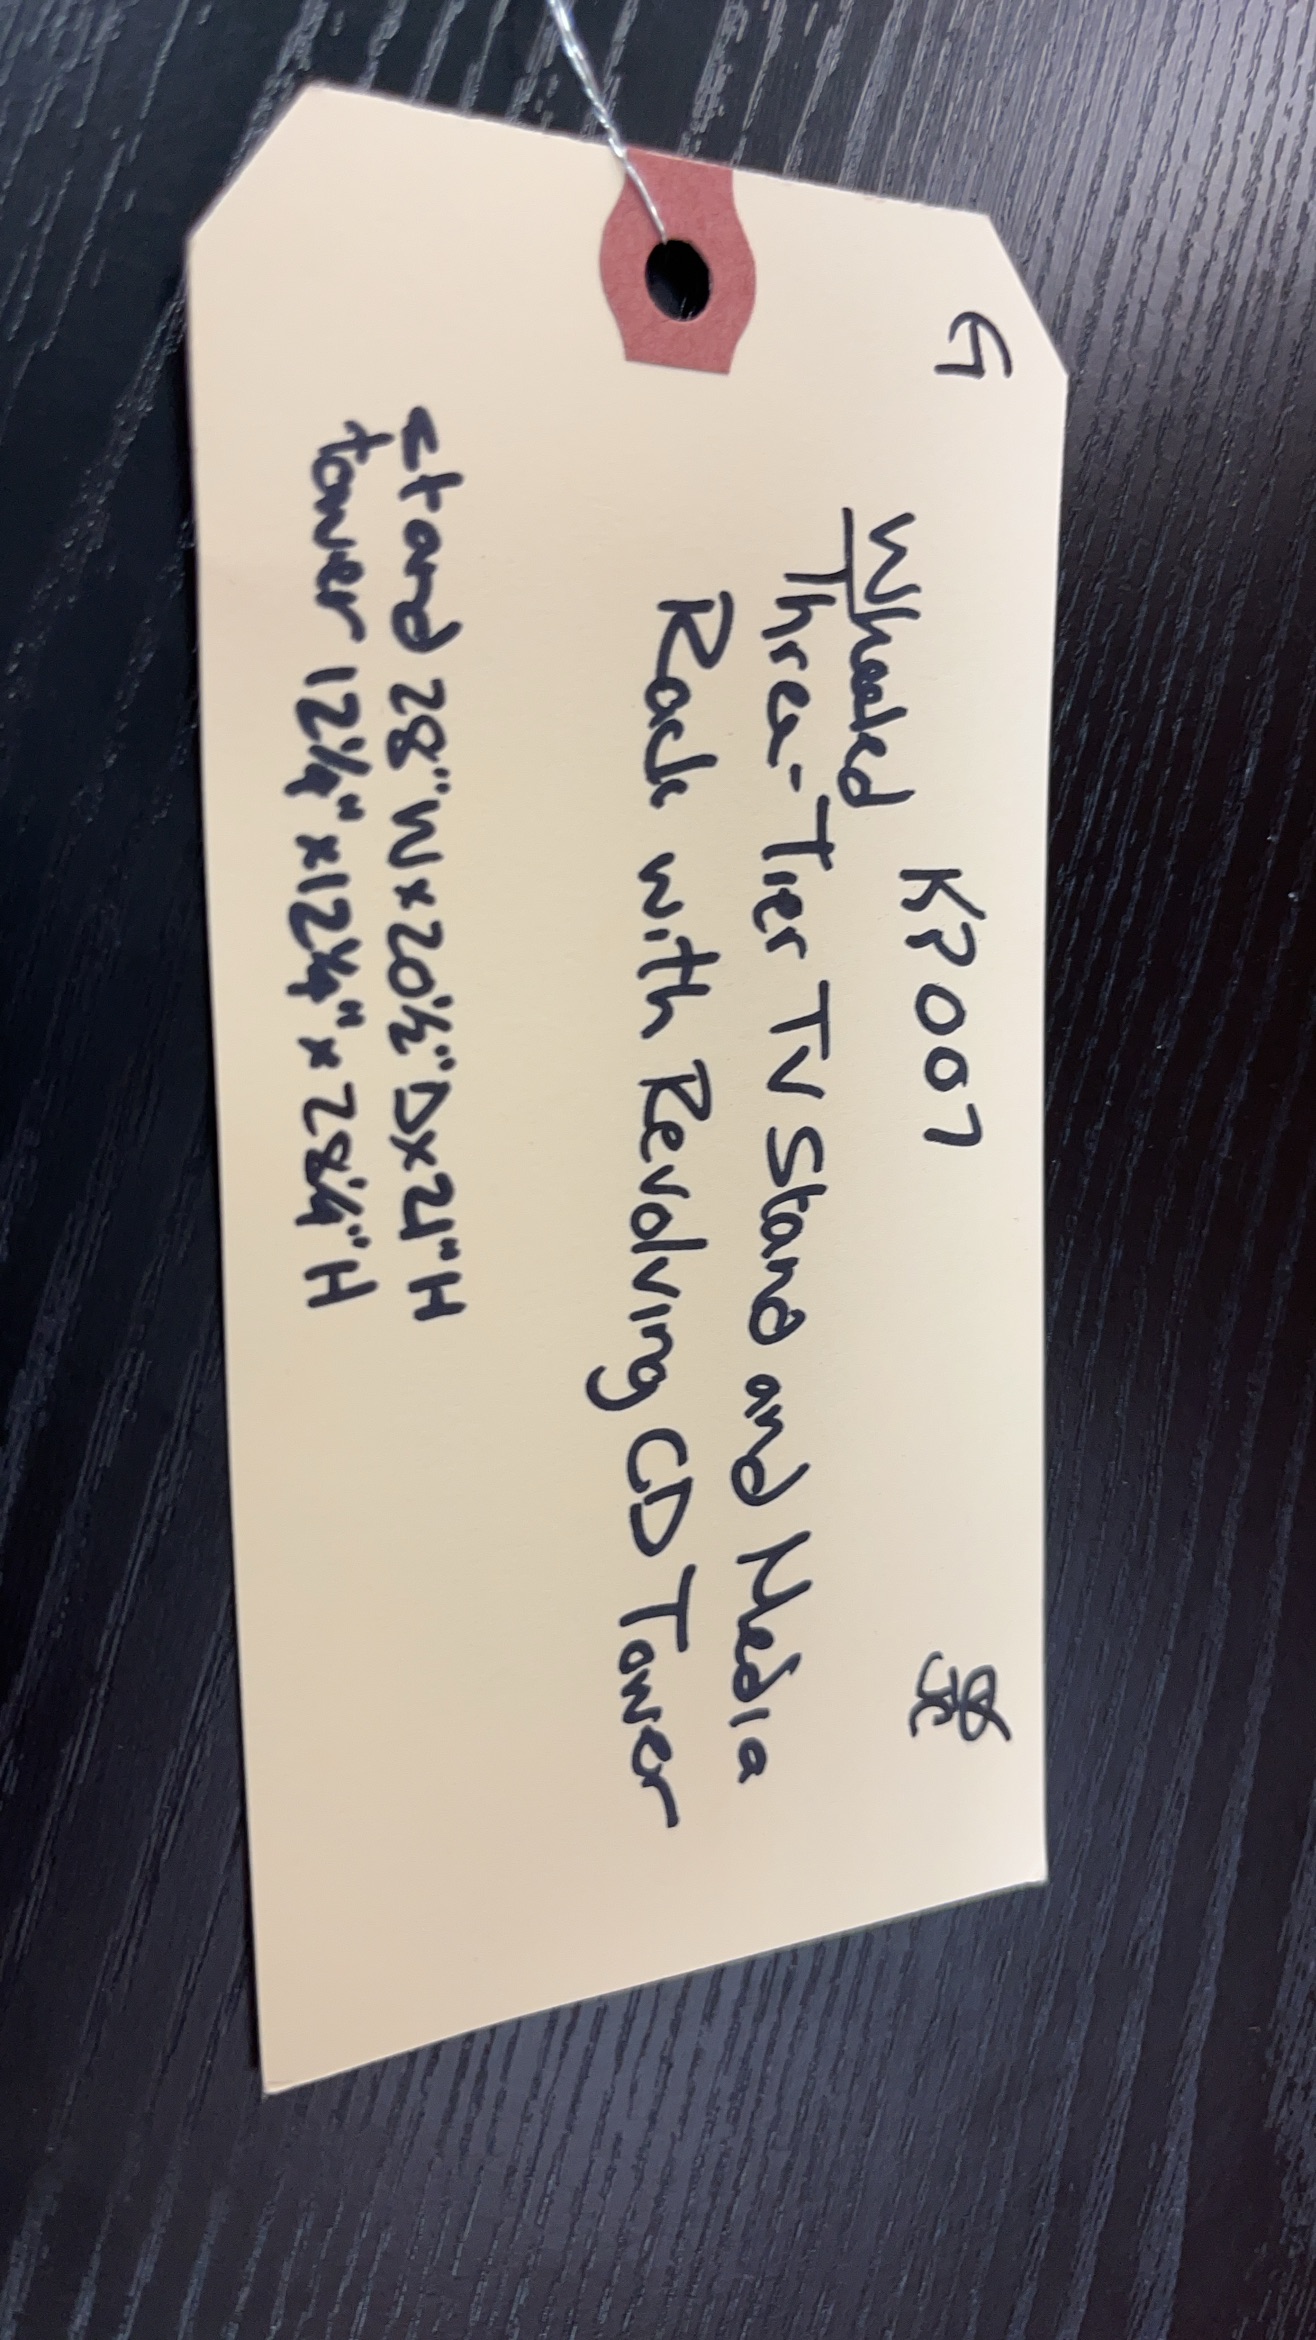 G
KP007
Wheeled
Three-Tier TV Stand and Media
Rack with Revolving CD Tower
stand 28"W x 20½"D x 21"H
tower 12¼" x 12¼" x 28¼"H